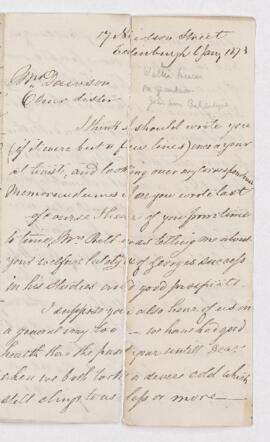 17 Newton Street
Edinburgh 6 Jany 1873
Mrs Dawson
Dear sister
I think I should wrote you
(if it were but a few lines) once a year
at least, and looking over my correspondence
Memorandums I see you wrote last
of course I hear of you from time
to time, Mrs Bell was telling me about
your welfare lately of Georges success
in his studies and good prospects
I suppose you also hear of us in
a general way too — we have enjoyed
health thro the past year untill Decr
when we both took a severe cold which
still clings to us less or more —